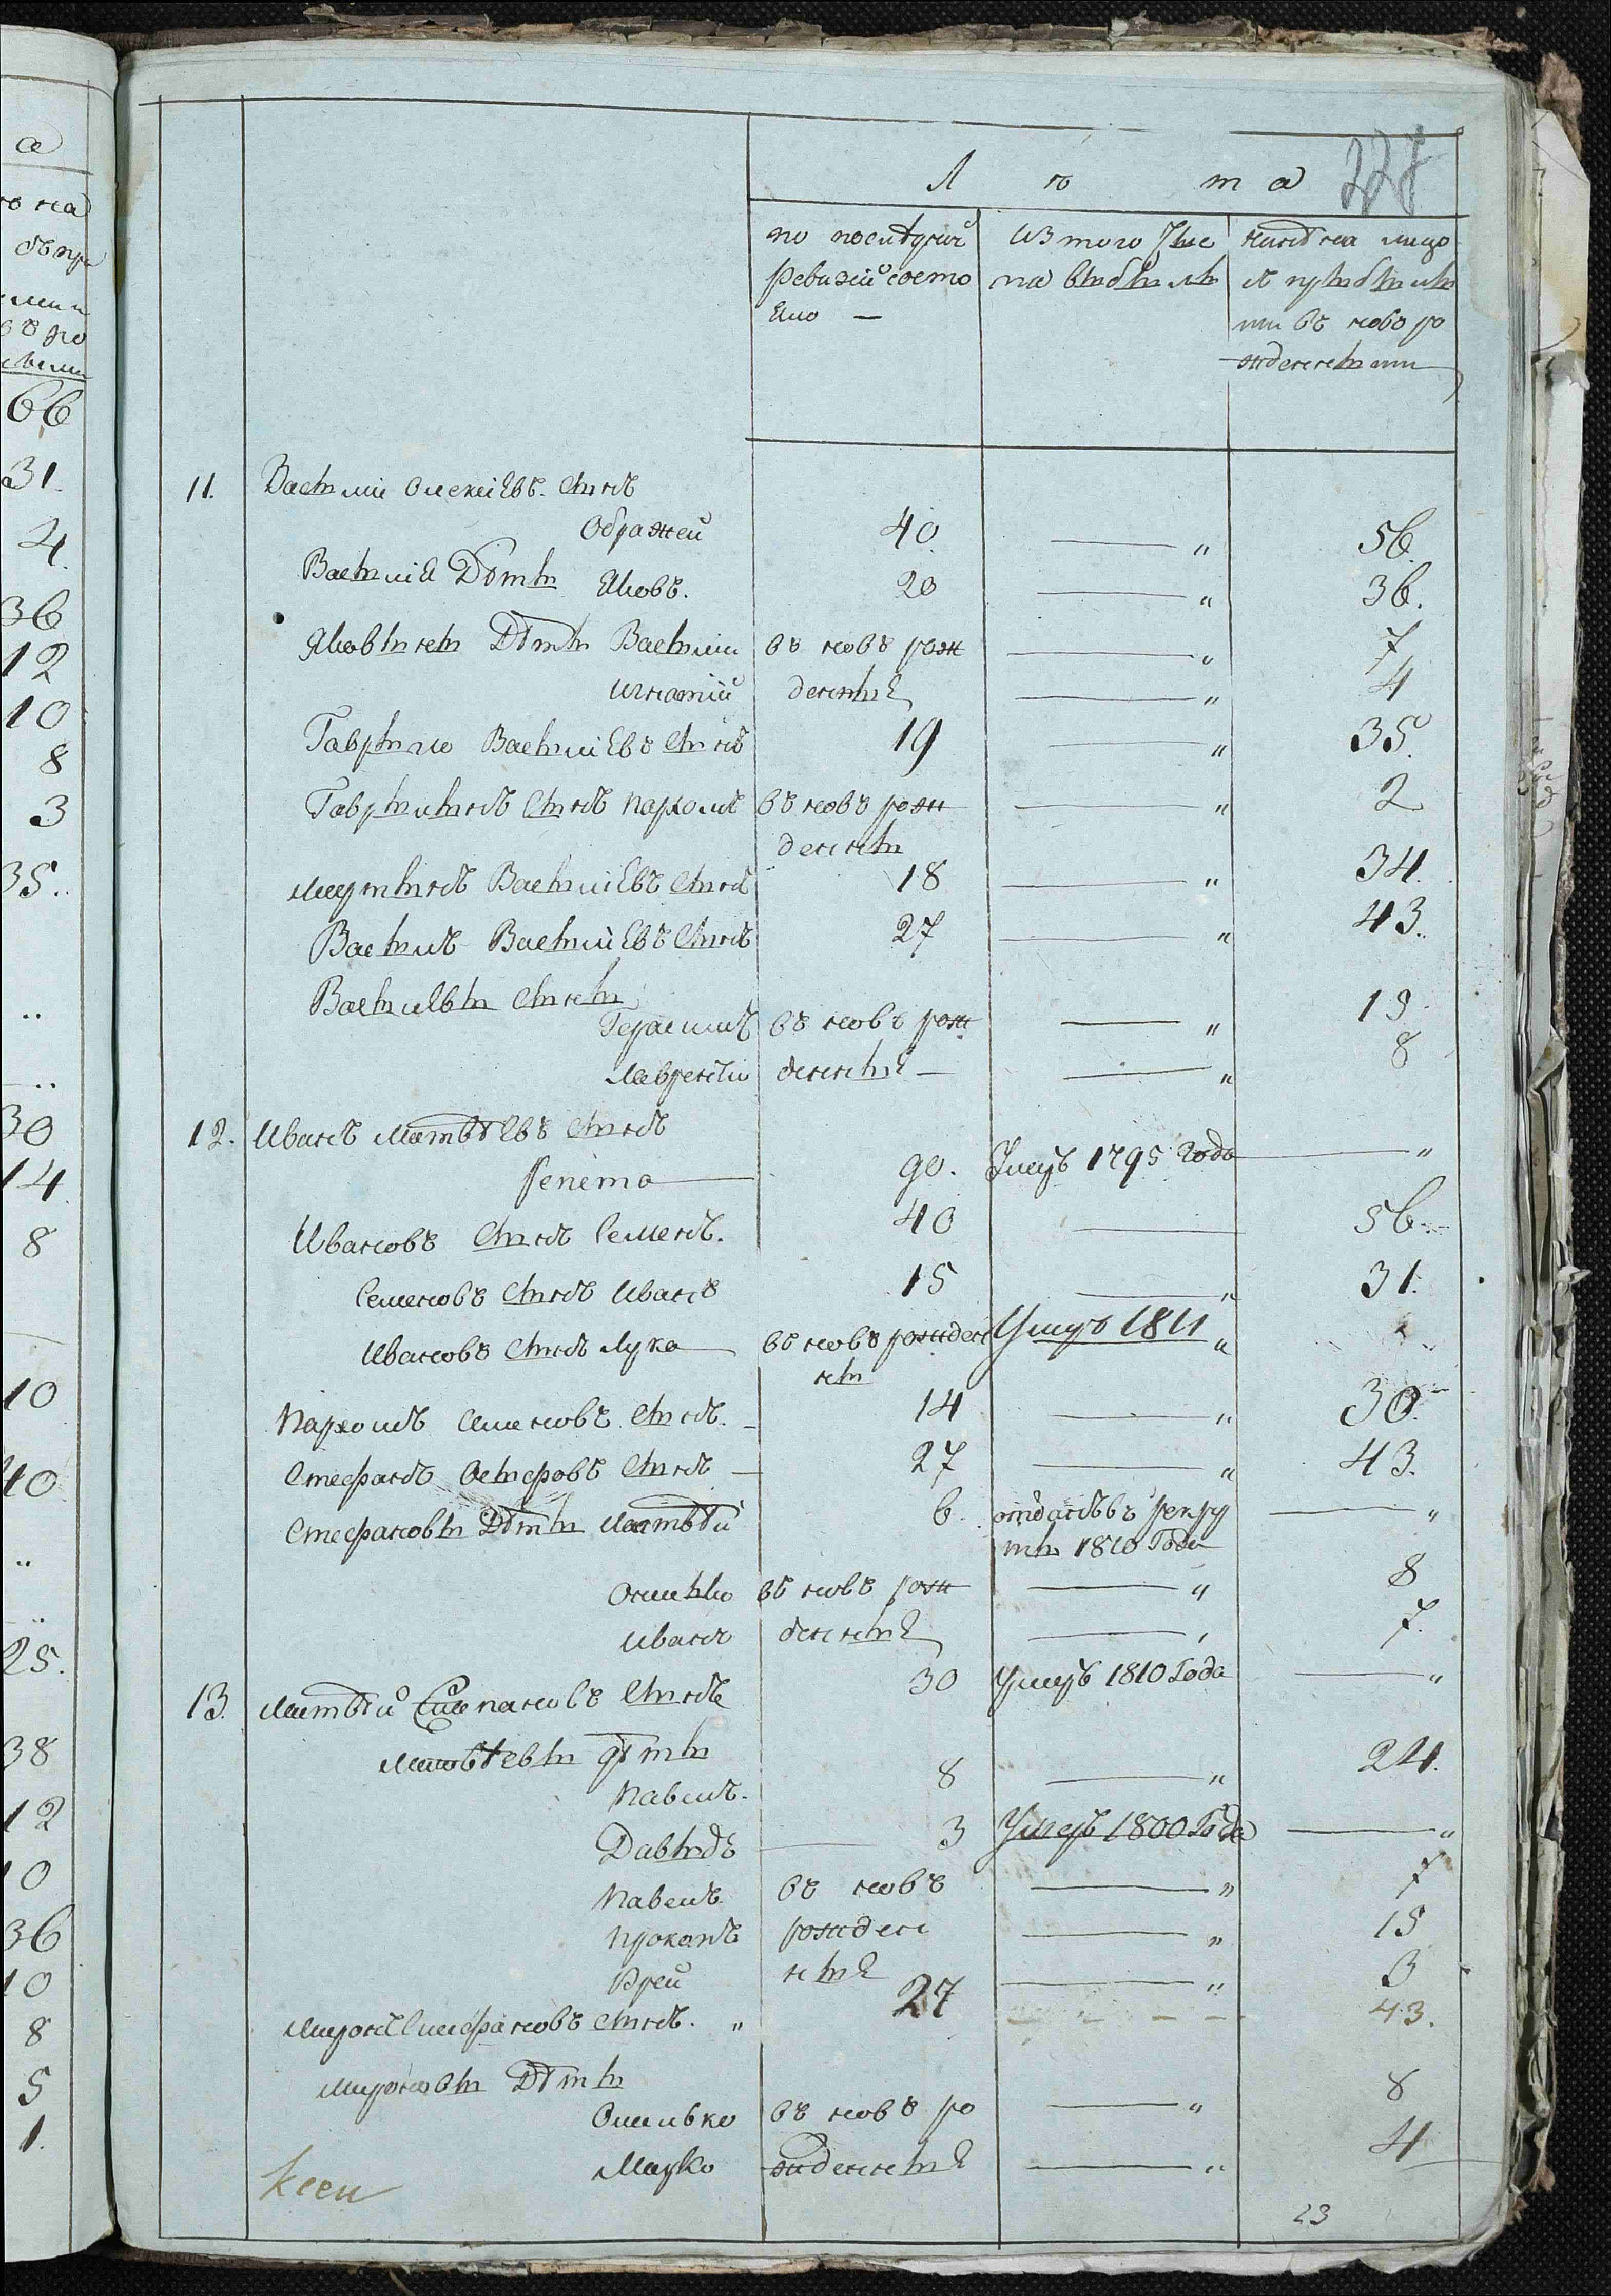 Лѣта
228
по последней ревизіи состо
яло —
из того числа выбыли
ныне на лицо
съ прыбылы
ми въ ново ро
жденными
11. Василій Олексіевъ сынъ
Ображей 40 — " 56
Василія Дѣти Яковъ. 20 — " 36.
Яковыны Дѣти Василій въ новѣ рож — " 7
Игнатій денныя — " 4
Гаврыло Василіевъ сынъ 19 — " 35.
Гаврылынъ сынъ Пархомъ въ новѣ рож — " 2
денны
Мартынъ Василіевъ сынъ 18 — " 34.
Василь Василіевъ сынъ 27 — " 43.
Василевы сыны
Герасимъ въ новѣ рож — " 19
Лаврентій денныя — — " 8
12. Иванъ Матвѣевъ сынъ
Репета 90. Умеръ 1795 Года — "
Ивановъ сынъ Семенъ. 40 — 56.
Семеновъ сынъ Иванъ 15 — " 31.
Ивановъ сынъ Лука въ новѣ рожден Умеръ 1811 "
ны
Пархомъ Семеновъ сынъ. 14 — " 30.
Стефанъ сынъ — 27 — " 43.
Стефановы Дѣти Матвѣй 6. отданъ въ рекру — "
ты 1810 Года
въ новѣ рож — " 8
Иванъ денныя — " 7.
13. Матвѣй сынъ 30 Умеръ 1810 Года — "
Матвѣевы дѣти
Павелъ. 8 — " 24.
Давыдъ 3 Умеръ 1800 Года — "
Павелъ въ новѣ — " 7
Прокопъ рожден — " 15
ныя — " 3
Миронъ Стефановъ сынъ. " 27 — " — 43.
Мироновы Дѣти
Омелько въ новѣ ро — " 8
Марко жденныя — " 4
23